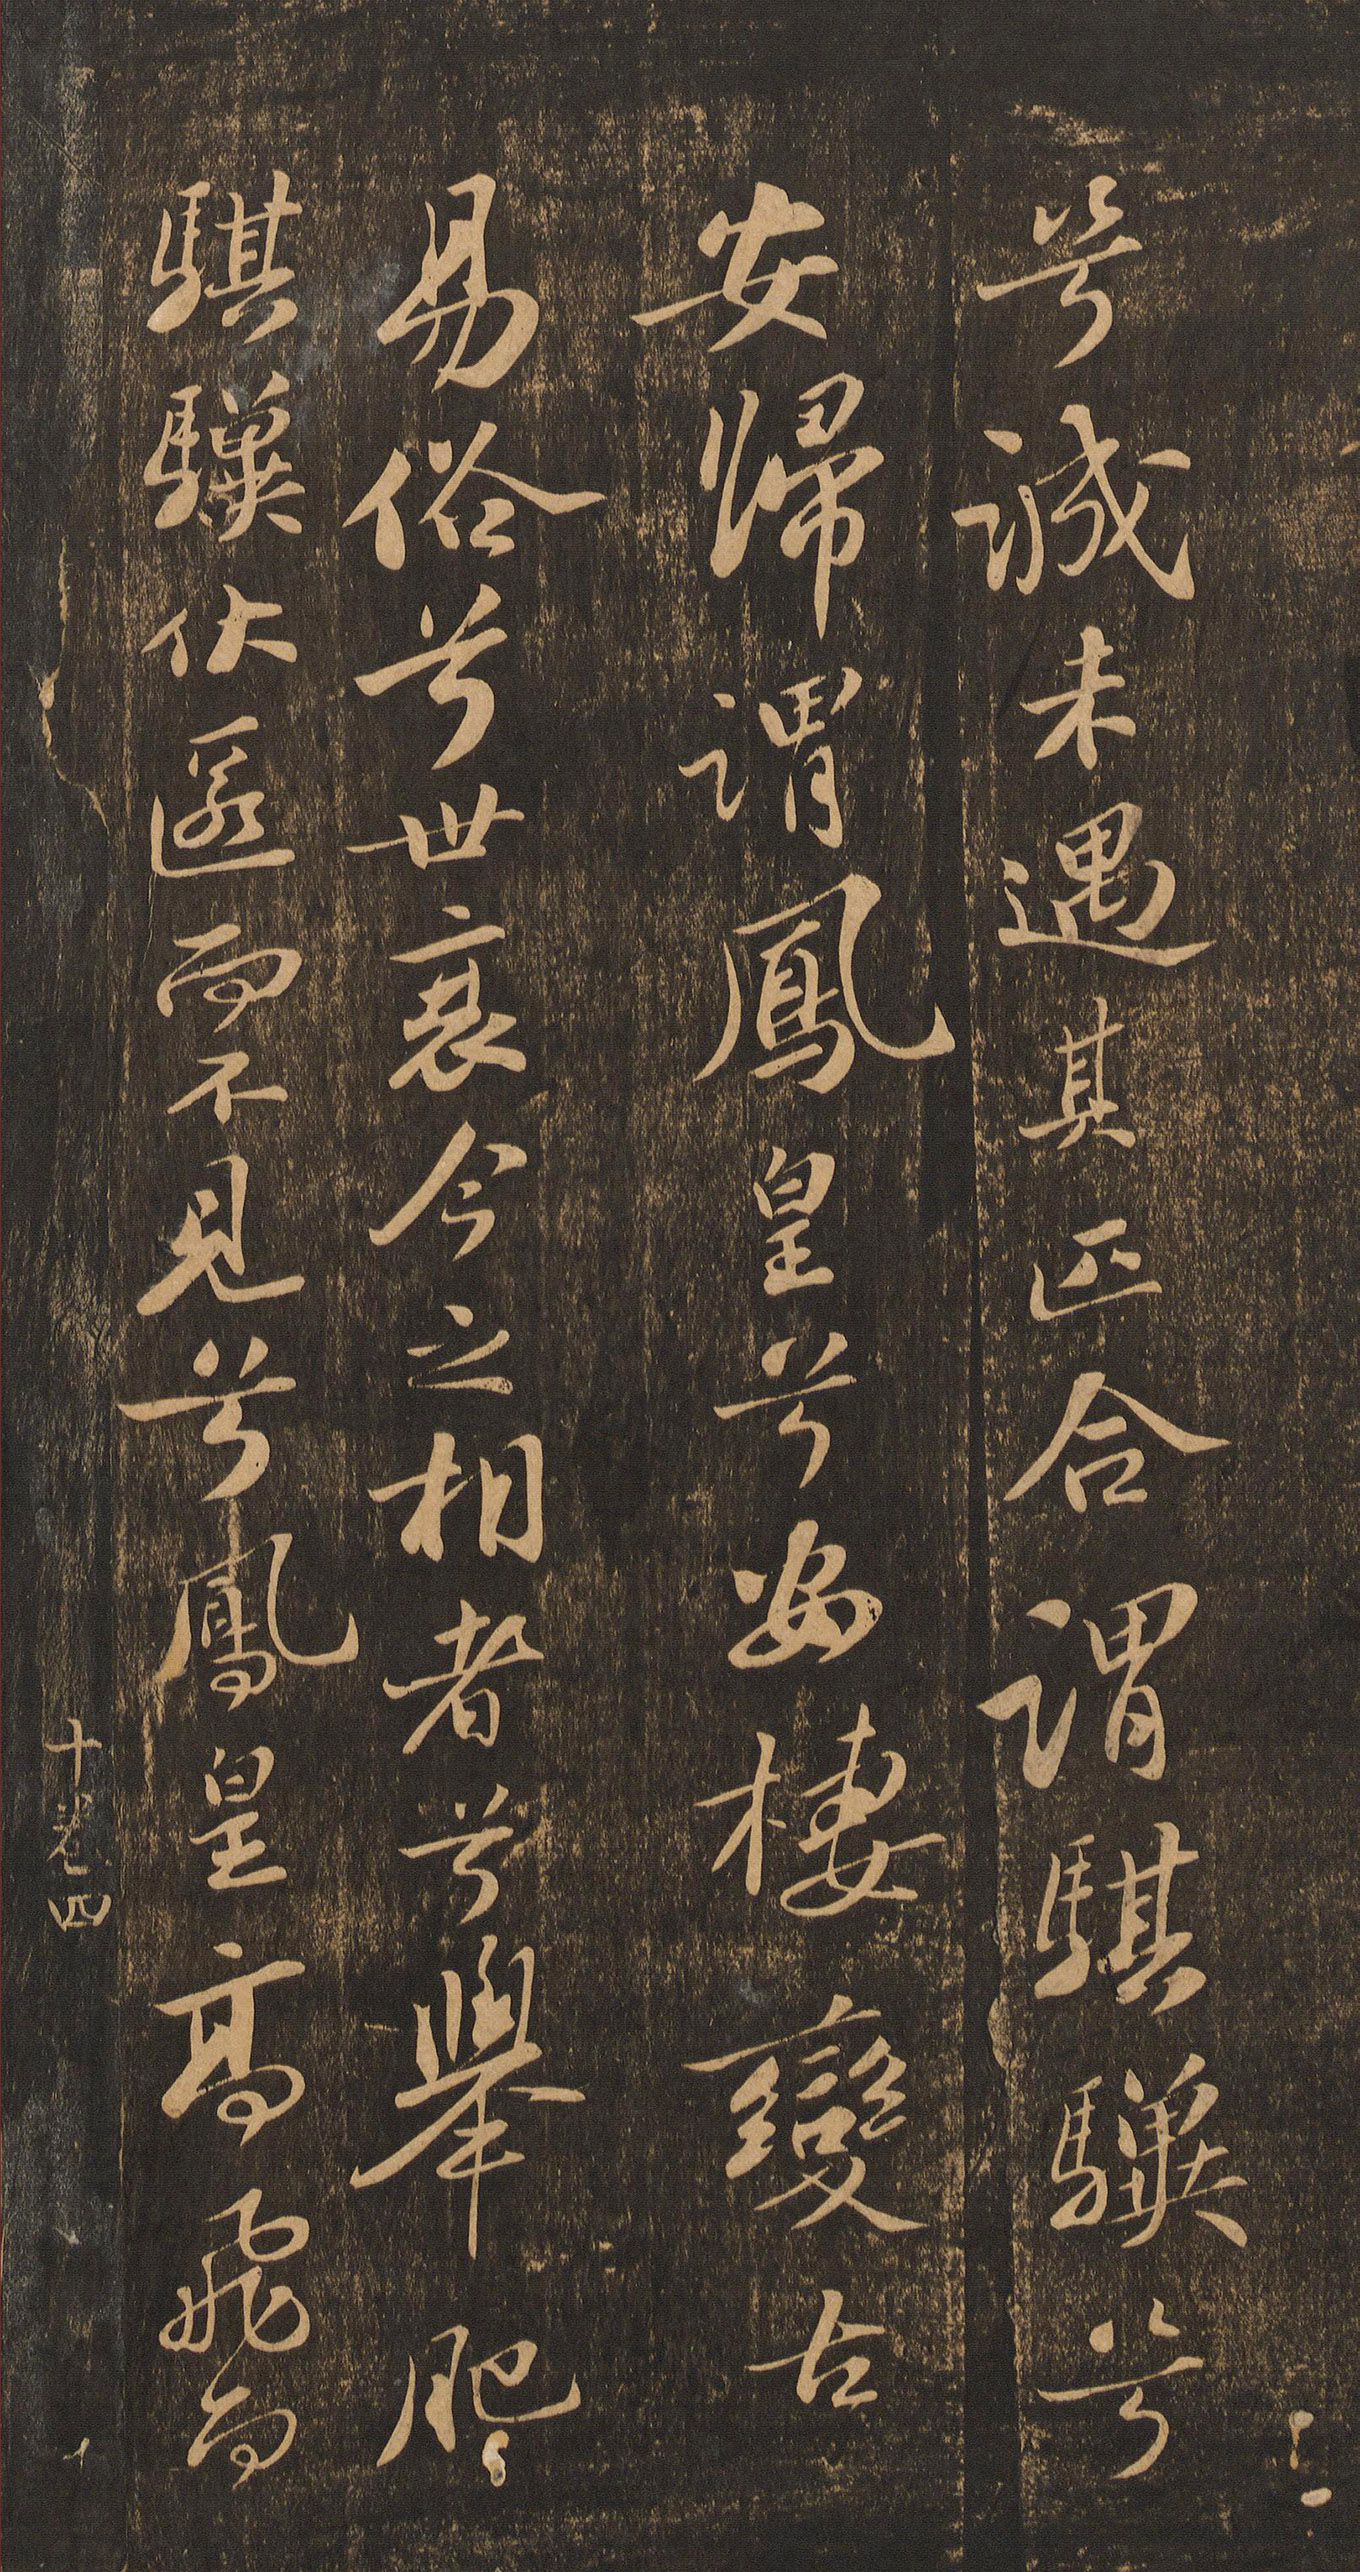 兮誠未遇其匹合謂騏驥兮
安歸謂鳳皇兮安棲變古
易俗兮世衰今之相者兮舉肥
騏驥伏匿而不見兮鳳皇高飛而
十卷四